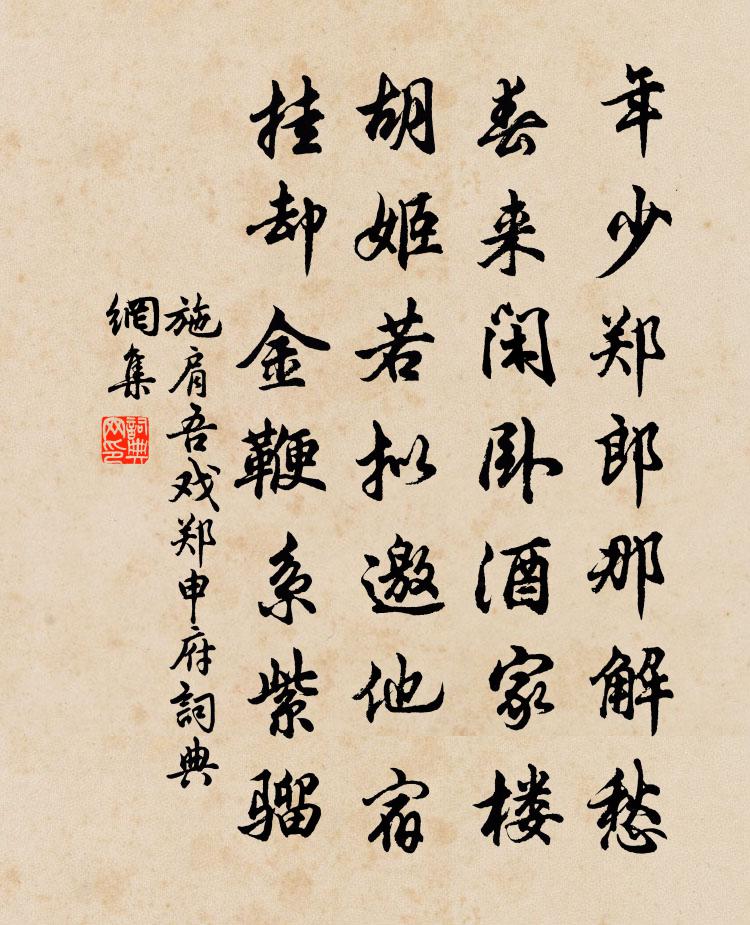 年少郑郎那解愁
春来闲卧酒家楼
胡姬若拟邀他宿
挂却金鞭系紫骝
施肩吾戏郑申府詞典
網集
詞典網印